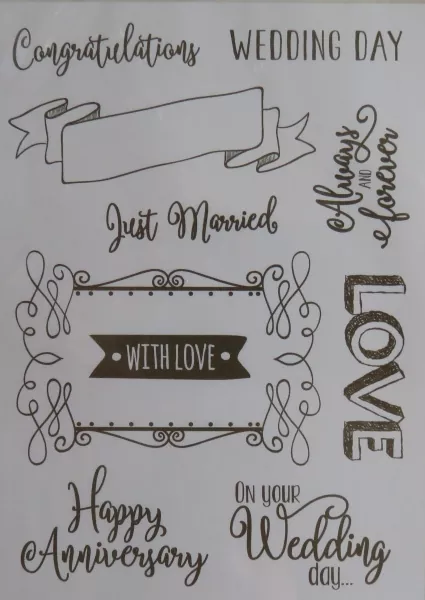 Congratulations
WEDDING DAY
Always
AND
forever
Just Married
LOVE
WITH LOVE
Happy
Anniversary
ON YOUR
Wedding
day...